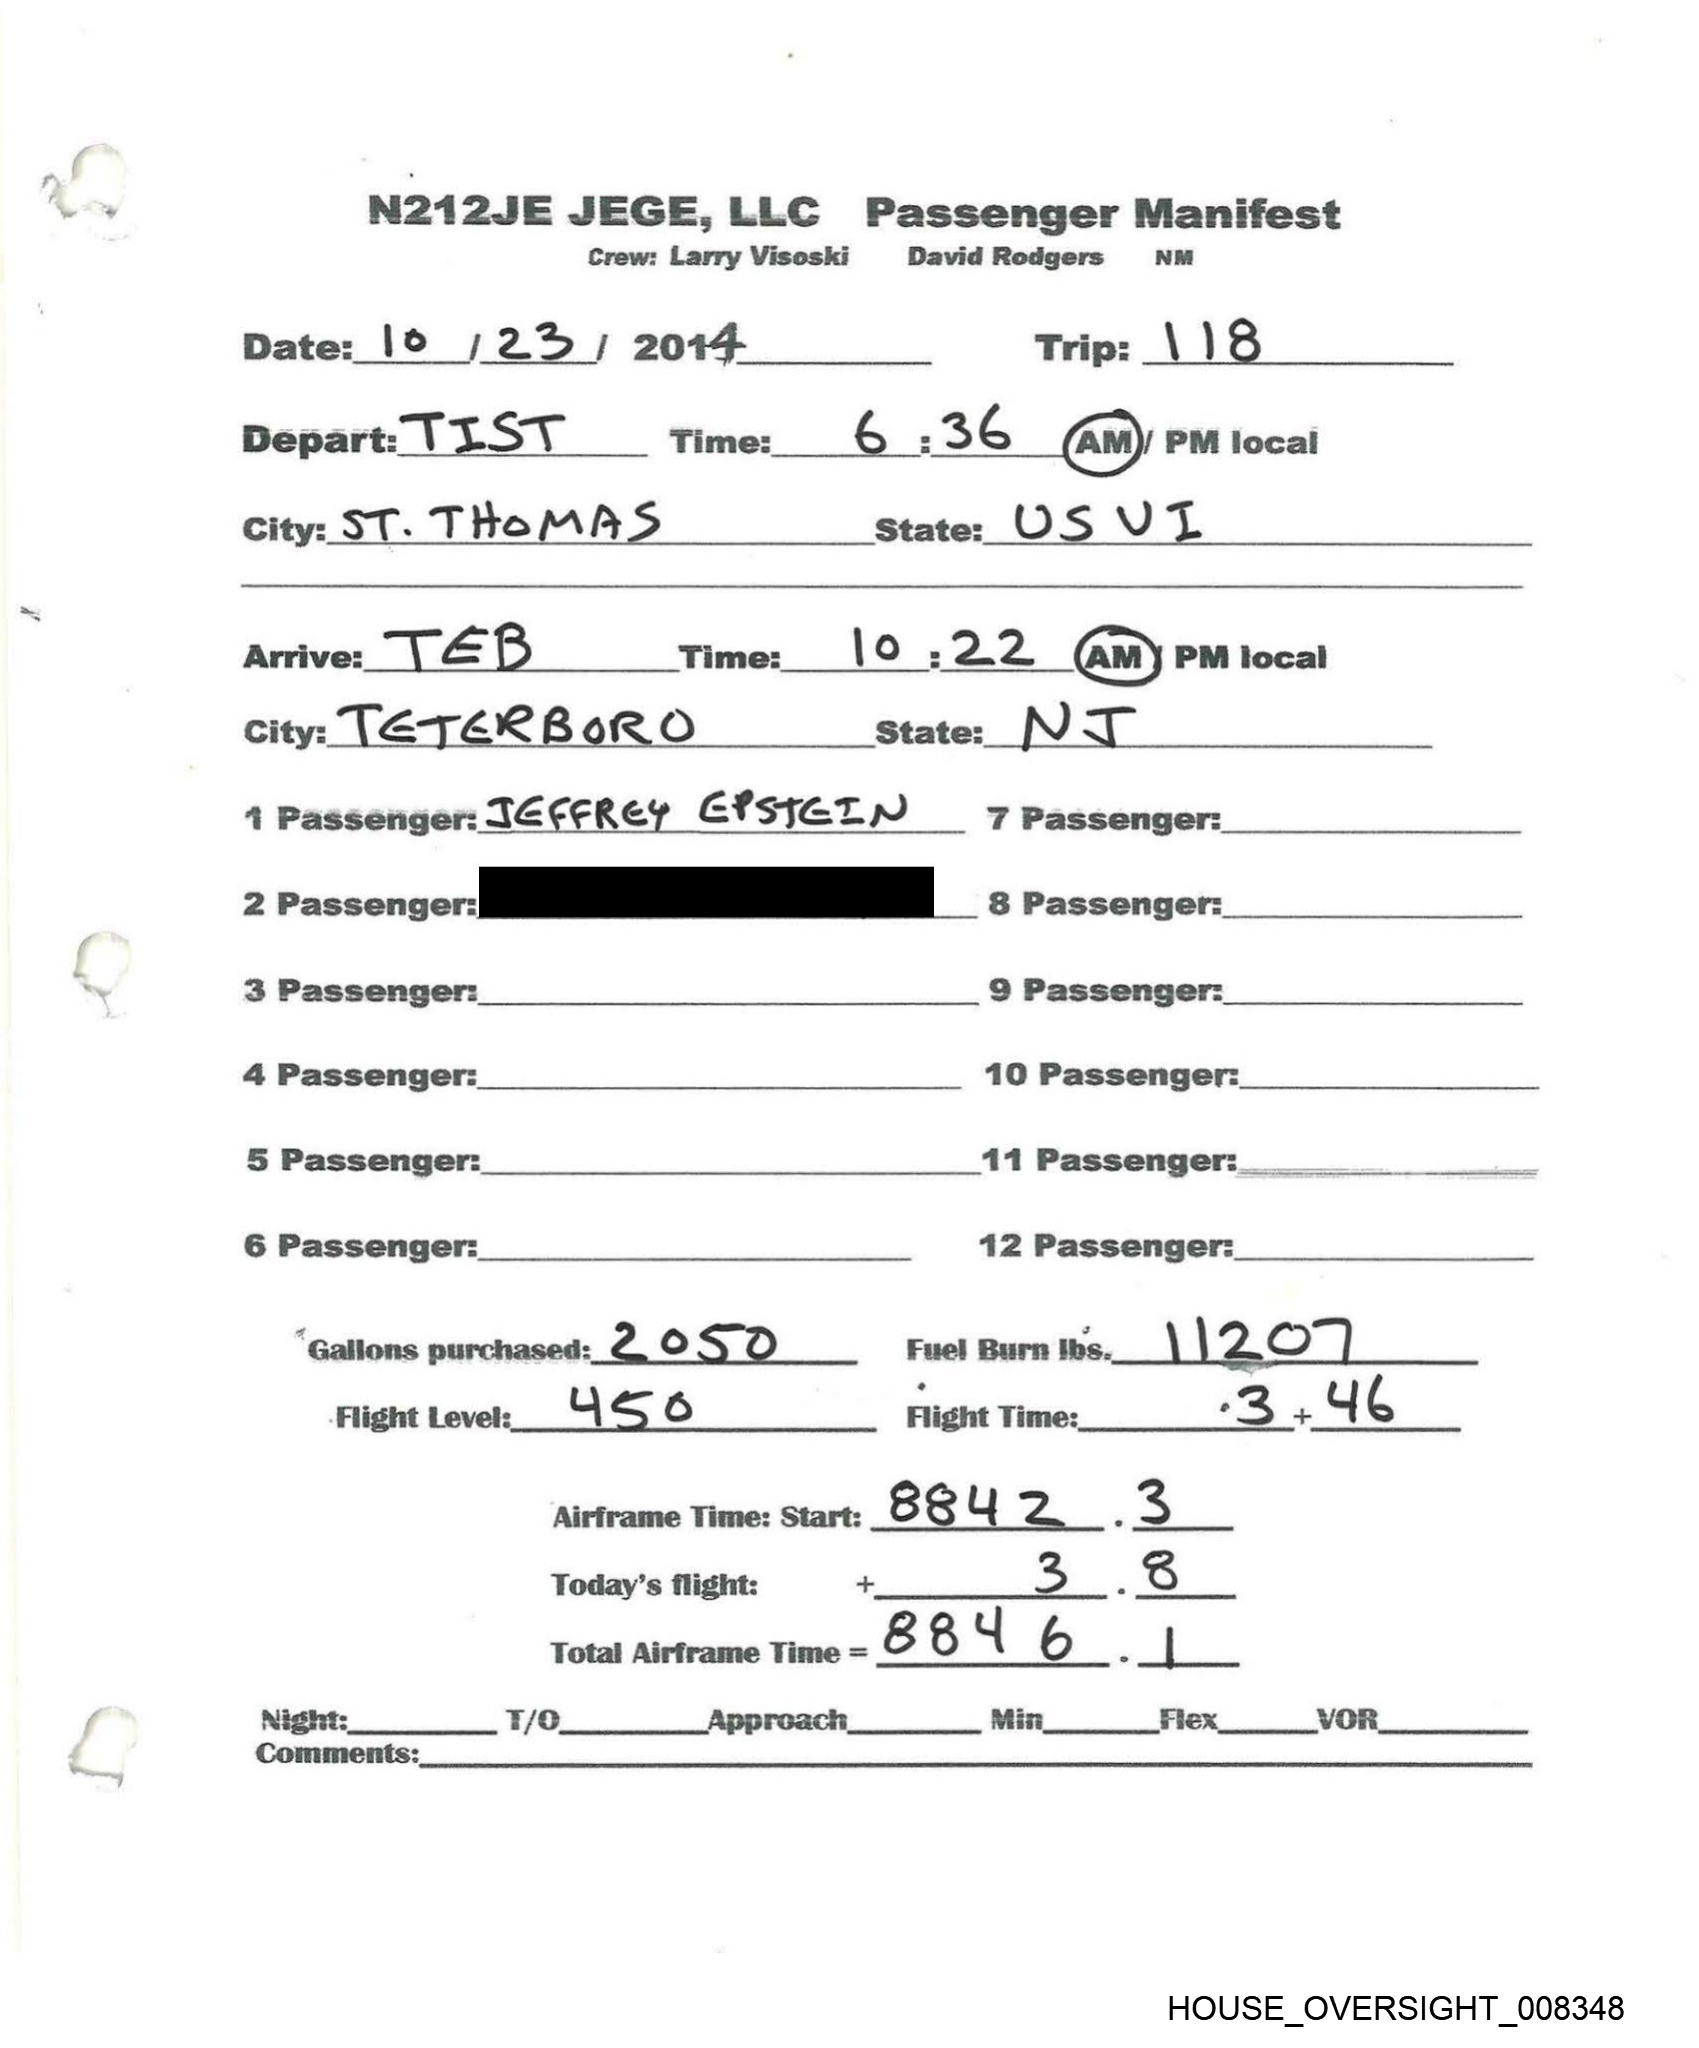 N212JE JEGE, LLC Passenger Manifest
Crew: Larry Visoski David Rodgers NM
Date: 10 / 23 / 2014 Trip: 118
Depart: TIST Time: 6 : 36 AM / PM local
City: ST. THOMAS State: USVI
Arrive: TEB Time: 10 : 22 AM / PM local
City: TETERBORO State: NJ
1 Passenger: JEFFREY EPSTEIN 7 Passenger:
2 Passenger: 8 Passenger:
3 Passenger: 9 Passenger:
4 Passenger: 10 Passenger:
5 Passenger: 11 Passenger:
6 Passenger: 12 Passenger:
Gallons purchased: 2050 Fuel Burn lbs. 11207
Flight Level: 450 Flight Time: 3 + 46
Airframe Time: Start: 8842 . 3
Today's flight: + 3 . 8
Total Airframe Time = 8846 . 1
Night: T/O Approach Min Flex VOR
Comments:
HOUSE_OVERSIGHT_008348